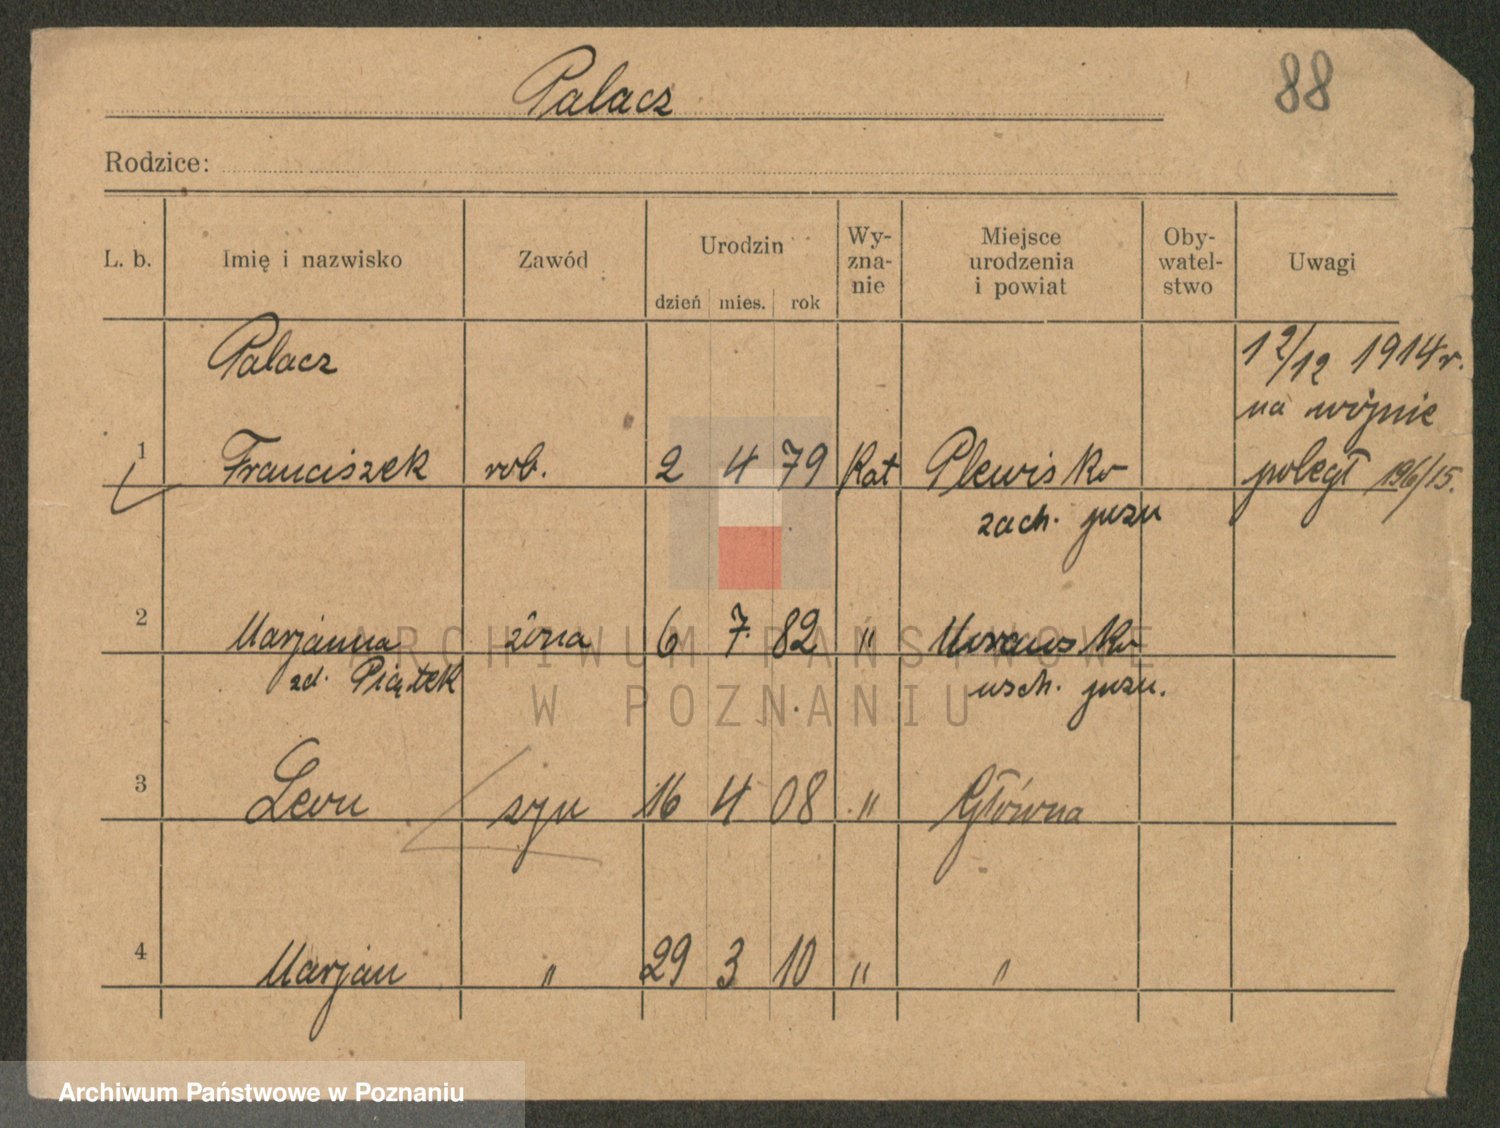 Palacz
88
Rodzice:
L. b. Imię i nazwisko Zawód Urodzin dzień mies. rok Wy-zna-nie Miejsce urodzenia i powiat Oby-watel-stwo Uwagi
Palacz 12/12 1914 r.
na wojnie
1 Franciszek rob. 2 4 79 kat Plewisko poległ 19 6/15.
zach. pozn
2 Marjanna żona 6 7. 82 " Murausko
zd. Piątek wsch. pozn.
3 Leon syn 16 4 08 " Główna
4 Marjan " 29 3 10 " "
ARCHIWUM PAŃSTWOWE
W POZNANIU
Archiwum Państwowe w Poznaniu